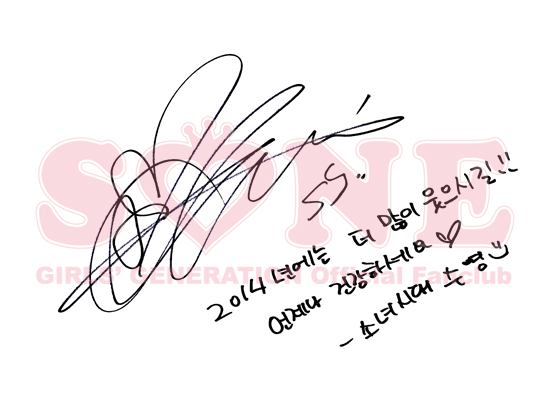 SONE
GIRLS' GENERATION Official Fanclub
SS"
2014년에는 더 많이 웃으시길!!
언제나 건강하세요♡
- 소녀시대 수영